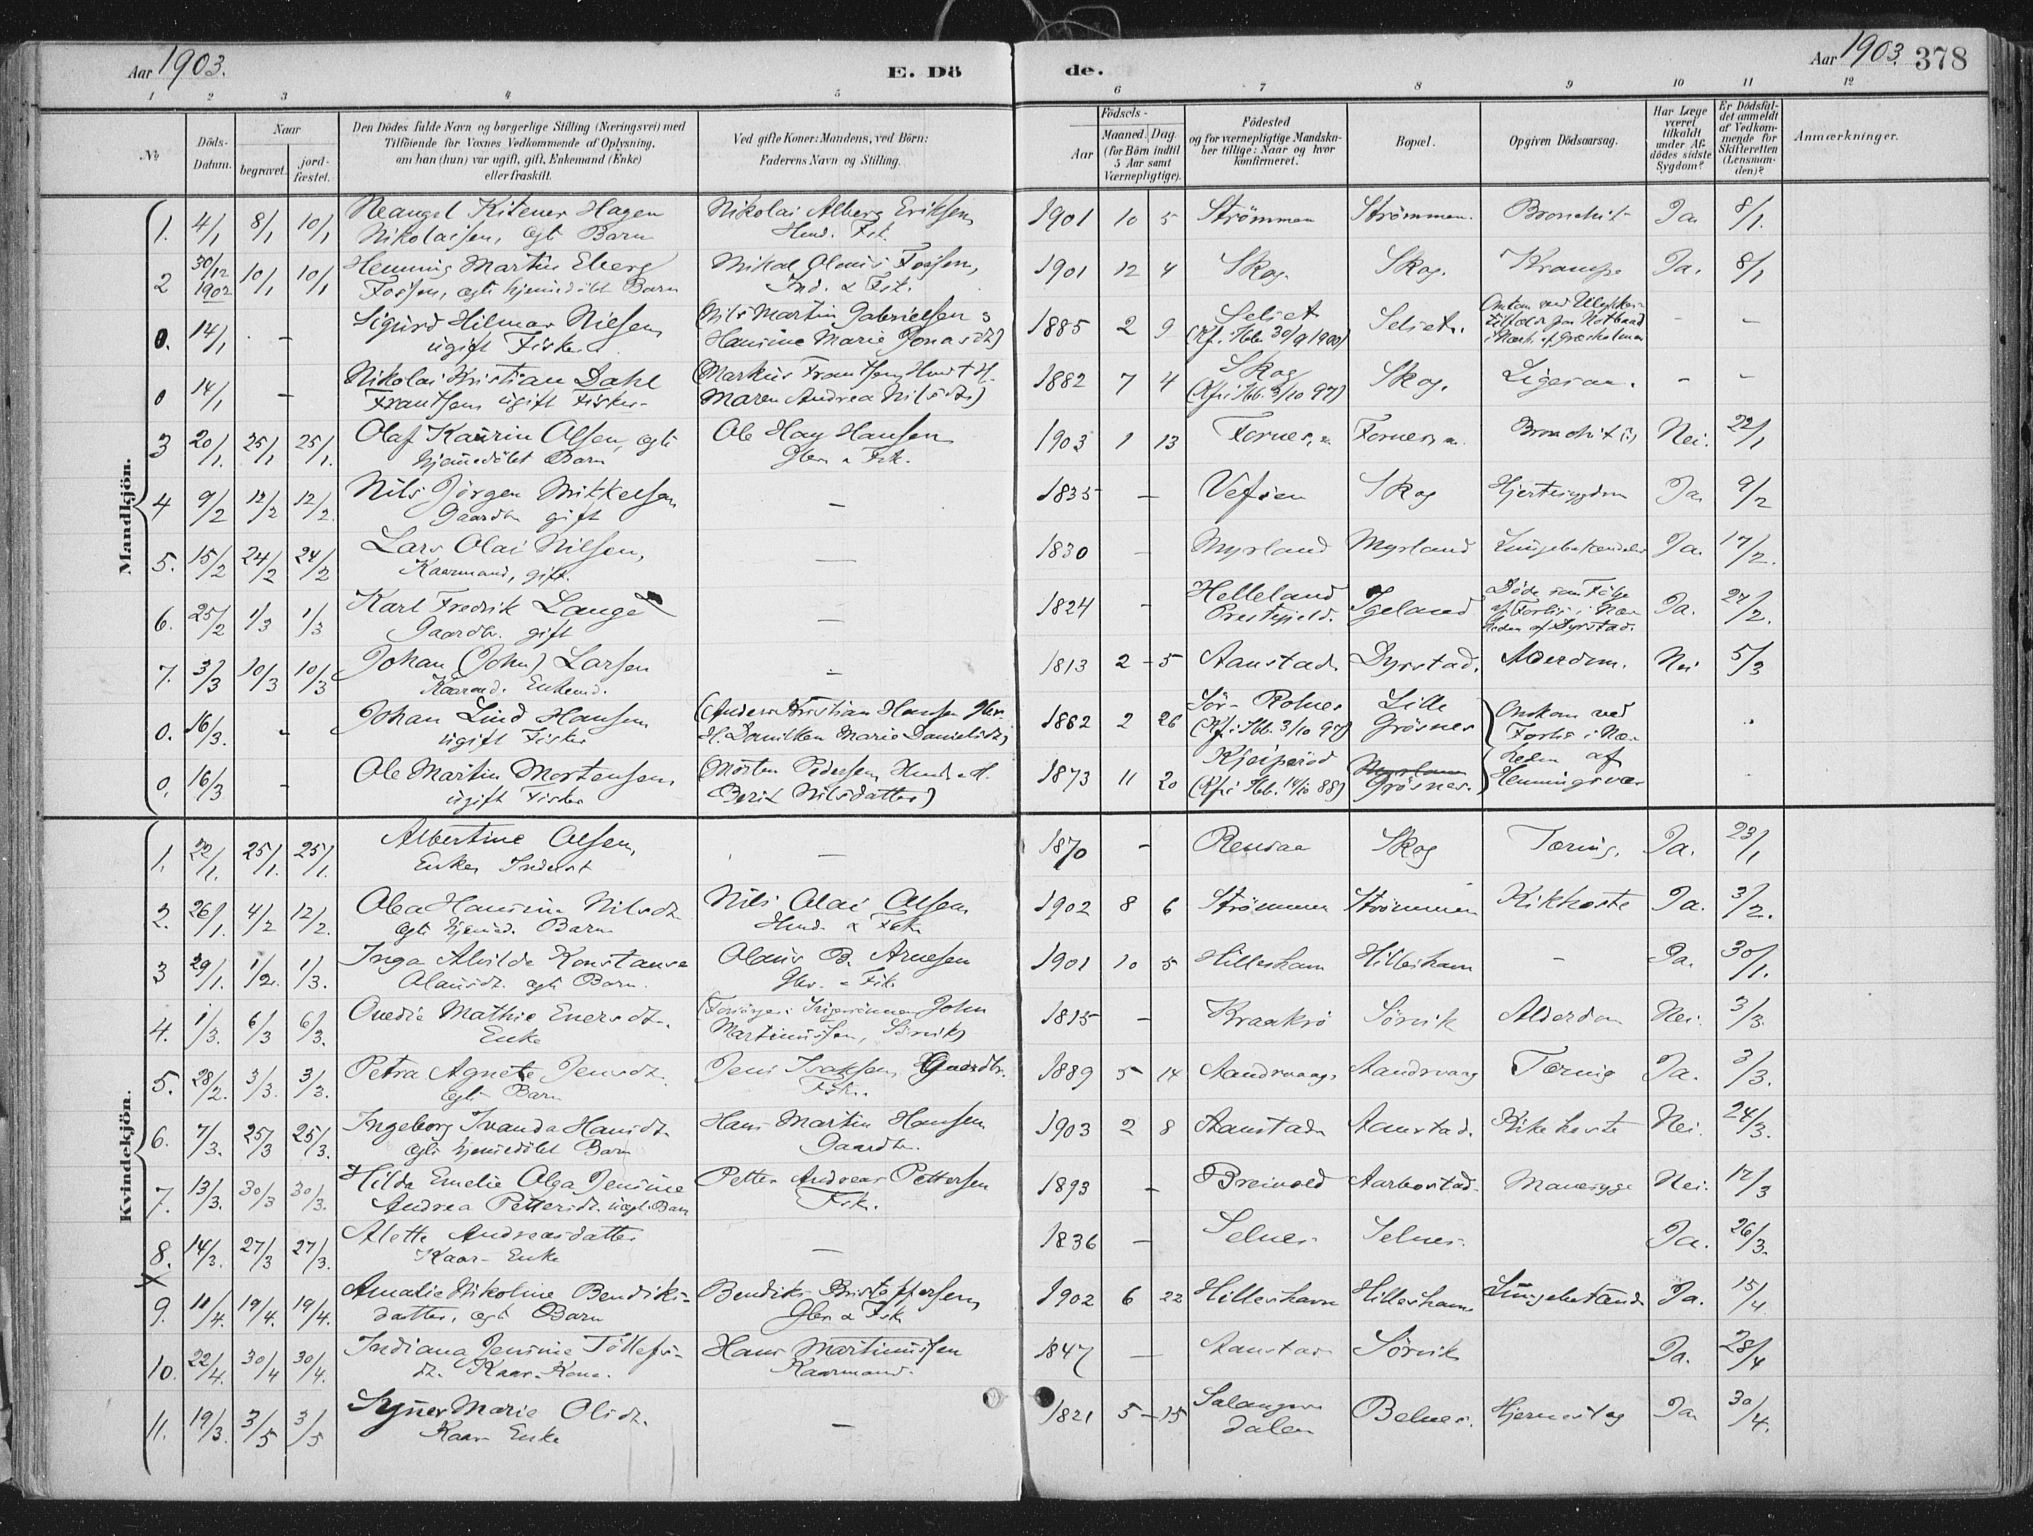 Aar 1903.
E. Dö
de.
Aar 1903. 378
1 2 3 4 5 6 7 8 9 10 11 12
No
Döds-
Datum.
Naar
begravet. jord-
fæstet.
Den Dödes fulde Navn og borgerlige Stilling (Næringsvei) med
Tilföiende for Voxnes Vedkommende af Oplysning,
om han (hun) var ugift, gift, Enkemand (Enke)
eller fraskilt.
Ved gifte Koner: Mandens, ved Börn:
Faderens Navn og Stilling.
Födsels-
Aar
Maaned. Dag.
(for Börn indtil
5 Aar samt
Værnepligtige).
Födested
og for værnepligtige Mandska-
ber tillige: Naar og hvor
konfirmeret.
Bopæl.
Opgiven Dödsaarsag.
Har Læge
været
tilkaldt
under Af-
dödes sidste
Sygdom?
Er Dödsfal-
det anmeldt
af Vedkom-
mende for
Skifteretten
(Lensman-
den)?
Anmærkninger.
Mandkjön.
1. 4/1 8/1 10/1 Hagen Nikolai Alberg Eriksen 1901 10 5 Strömmen Strömmen. Bronchit- Ja 8/1.
Nikolaisen, egt. Barn Fsk.
2 30/12 1902 10/1 10/1 Henning Martin Eberg 1901 12 4 Skog. Skog. Krampe Ja. 8/1
Barn Ind. & Fsk.
0. 14/1 - Sigurd Hilmar Nilsen Nils Martin Gabrielsen 1885 2 9 Selset Selset. - -
ugift Fisker Hansine Marie Jonasdt) (Kf. i Hb. 30/9 1900)
0 14/1 - Nikolai Kristian Dahl (Markus Frantsen 1882 7 4 Skog Skog. Ligesaa. - -
Frantsen ugift Fisker Maren Andrea Nilsdt) (Kf. i Hb. 3/10 97)
3 20/1. 25/1 25/1. Olaf Kaurin Olsen, egt. Ole Hansen 1903 1 13 Fornes, Fornes, Bronchit Nei. 22/1
hjemmedöbt Barn Gbr. & Fsk.
4 9/2 12/2 12/2. Nils Jörgen Mikkelsen - 1835 - Vefsen Skog Hjertesygdom Ja. 9/2
Gaardbr. gift
5. 15/2 24/2 24/2 Lars Olai Nilsen, - 1830 - Myrland Myrland Lungebetændelse Ja. 17/2.
Kaarmand, gift.
6. 25/2 1/3 1/3 Karl Fredrik Lange - 1824 - Helleland Igeland Döde som Fölge Ja. 27/2.
Gaardbr. gift Prestegjeld. af Forlis i Nær-
heden af Dyrstad.
7. 3/3 10/3 10/3 Johan (John) Larsen - 1813 2 5 Aanstad Dyrstad. Alderdom. Nei 5/3
Kaarmd. Enkemd.
0. 16/3. - Johan Lind Hansen (Anders Kristian Hansen 1882 2 26 Sör-Rolnes Lille Omkom ved
ugift Fisker Marie Danielsdt) (Kf. i Hb. 3/10 97) Grösnes Forlis i Nær-
0. 16/3 - Ole Martin Mortensen, (Morten Pedersen 1873 11 20 heden af
ugift Fisker Berit Nilsdatter) (Kf. i Hb. 14/10 88) Grösnes. Henningsvær
Kvindekjön.
1. 22/1. 25/1. 25/1. Albertine Olsen, - 1870 - Rensaa Skog Tæring. Ja. 23/1
Enke, Inderst
2. 26/1. 4/2 12/2. Olea Hansine Nilsdt. Nils Olai Olsen 1902 8 6 Strömmen Strömmen Kikhoste Ja. 3/2.
egt. hjemmed. Barn & Fsk
3 29/1. 1/2. 1/3. Inga Alvilda Konstanse Olaus B. Arnesen 1901 10 5 Hilleshavn Hilleshavn - Ja. 30/1.
Olausdt. egt. Barn. Gbr. & Fsk.
4. 1/3. 6/3 6/3. Mathie John 1815 - Sörvik Alderdom Nei. 3/3.
Enke Martinussen, Sörvik)
5. 28/2. 3/3. 3/3. Petra Agnete Jensdt. Jens Isaksen, Gaardbr. 1889 5 14 Sandvaag Sandvaag Tæring Ja. 3/3.
egt. Barn Fsk.
6. 7/3. 25/3 25/3. Ingeborg Ivanda Hansdt. Hans Martin Hansen 1903 2 8 Aanstad Aanstad. Kikhoste Nei. 24/3.
egt. hjemmedöbt Barn Gaardbr.
7. 13/3. 30/3 30/3. Hilda Emelie Olga Jensine Petter Andreas Pettersen 1893 - Breivold Aarbostad Mavesyge Nei. 17/3
Andrea Pettersdt. uegt. Barn Fsk.
8. 14/3. 27/3 27/3. Alette Andreasdatter - 1836 - Selnes Selnes. Ja. 26/3.
Kaar-Enke
X 9. 11/4. 19/4. 19/4. Amalie Nikoline Bendiks- Bendiks Kristoffersen 1902 6 22 Hilleshavn Hilleshavn Lungebetænd. Ja. 15/4.
datter, egt. Barn Gbr. & Fsk
10. 22/4. 30/4 30/4. Indiana Jensine Tollefs- Hans Martinussen 1847 - Aanstad Sörvik Ja. 28/4
dt. Kaar-Kone. Kaarmand.
11. 19/3. 3/5 3/5 Marie Olsdt. - 1821 5 15 Salangs- Belnes. Hjerneslag Ja 30/4.
Kaar Enke dalen